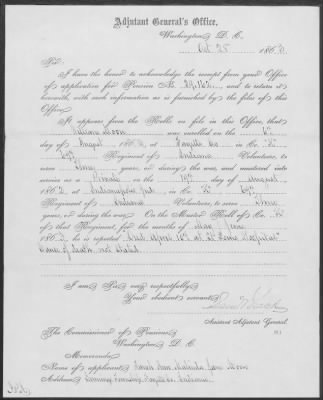 Adjutant General's Office,
Washington, D. C.
Oct 28 1863.
Sir:
I have the honor to acknowledge the receipt from your Office
of application for Pension No. and to return it
herewith, with such information as is furnished by the files of this
Office.
It appears from the Rolls on file in this Office, that
William Moon was enrolled on the
day of August 1862, at Fayette Co in Co.
69th Regiment of Indiana Volunteers, to
serve three years, or during the war, and was mustered into
service as a Private on the 19th day of August
1862, at Indianapolis Ind. in Co. 69th
Regiment of Indiana Volunteers, to serve Three
years, or during the war. On the Muster Roll of Co.
of that Regiment, for the months of May June
1863, he is reported Died April at St Louis Hospital
Cause of death not stated.
I am, Sir, very respectfully,
Your obedient servant,
Assistant Adjutant General.
The Commissioner of Pensions,
Washington D. C.
Memoranda:
Name of applicant Jane Moon
Address Indiana